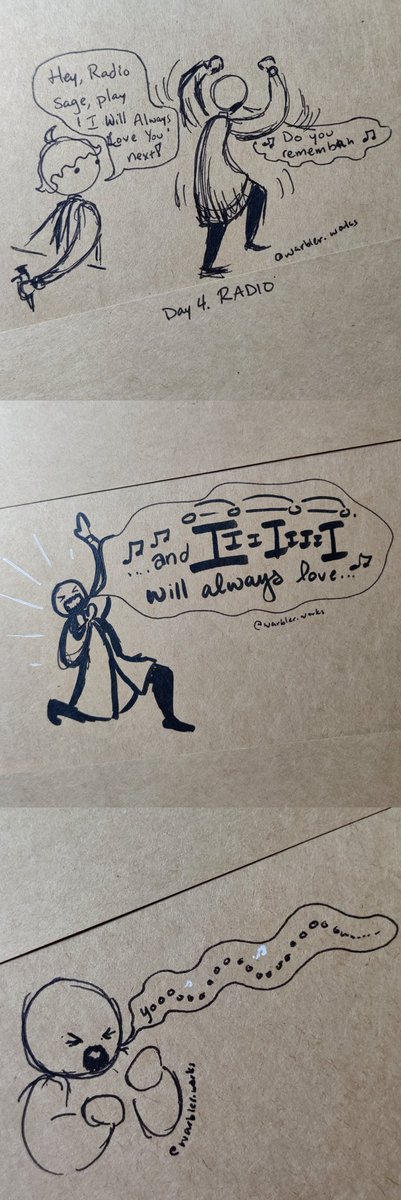 Hey, Radio
Sage, play
'I Will Always
Love You'
next!
♫ Do you
remembah ♫
@warbler.works
Day 4. RADIO
♫ ♫
....and IIIIIIII
will always love...♫
@warbler.works
yooooooooooooooooooouu.....
@warbler.works